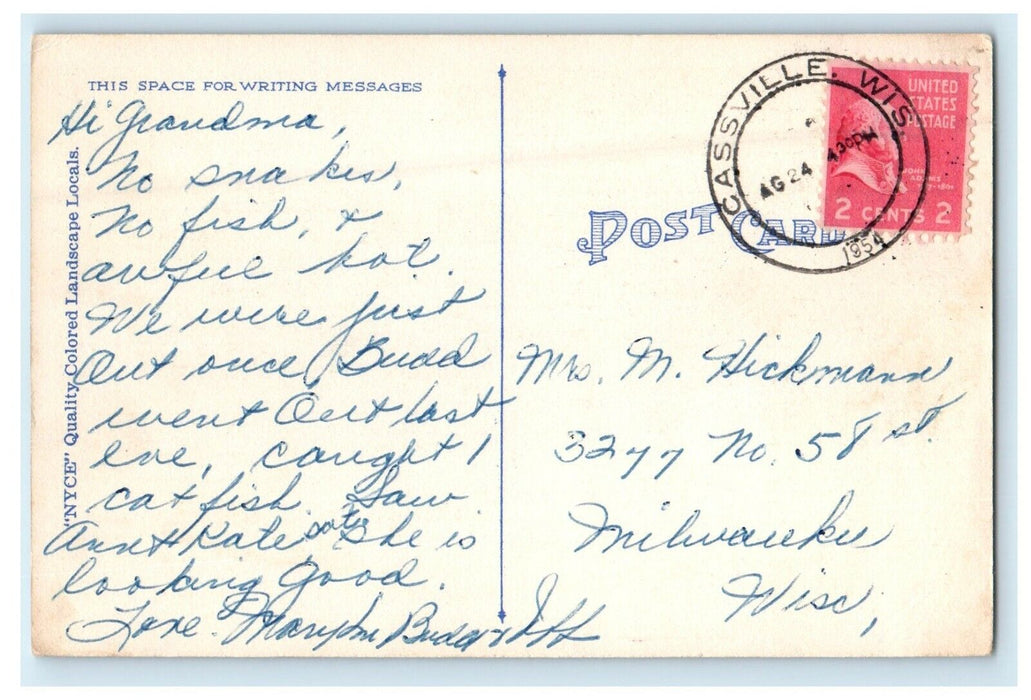 THIS SPACE FOR WRITING MESSAGES
Hi Grandma,
No snakes,
No fish, &
awful hot.
We were just
Out once, Budd
went Out last
eve, caught 1
cat fish. Saw
Ann & Kate Sat. She is
looking good.
Love. Budd &
"NYCE" Quality Colored Landscape Locals.
POST CARD
CASSVILLE. WIS.
AG 24
4 30 PM
1954
UNITED
STATES
POSTAGE
JOHN
ADAMS
2 CENTS 2
Mrs. M. Hickmann
3277 No. 58 st.
Milwaukee
Wisc,